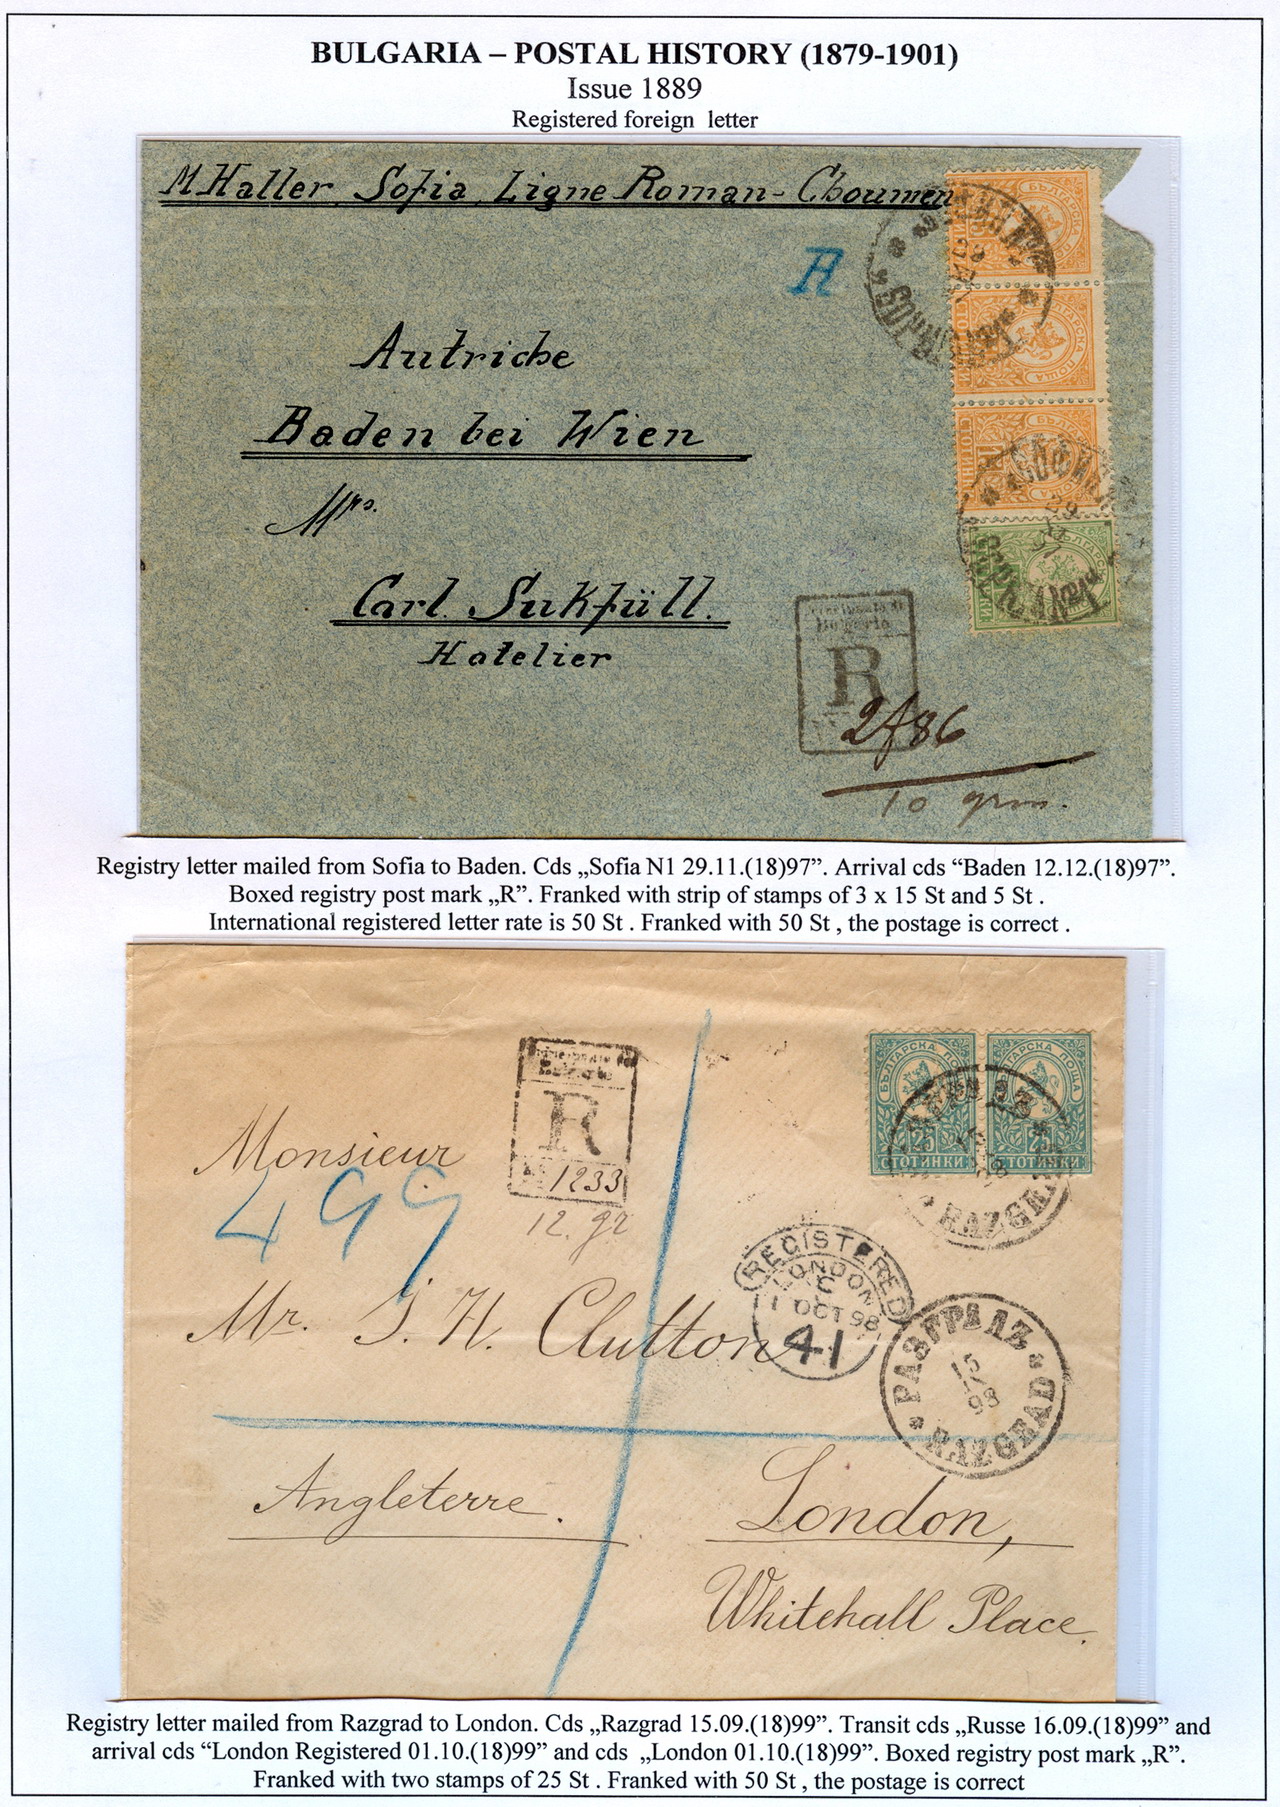 BULGARIA – POSTAL HISTORY (1879-1901)
Issue 1889
Registered foreign letter
M Haller, Sofia, Ligne Roman-Choumen
A
Autriche
Baden bei Wien
Mrs.
Carl Sukfüll.
Hotelier
Bulgarie
R
2786
10 grm.
БЪЛГАРСКА ПОЩА
СТОТИНКИ
29
Registry letter mailed from Sofia to Baden. Cds „Sofia N1 29.11.(18)97”. Arrival cds “Baden 12.12.(18)97”.
Boxed registry post mark „R”. Franked with strip of stamps of 3 x 15 St and 5 St .
International registered letter rate is 50 St . Franked with 50 St , the postage is correct .
БЪЛГАРСКА ПОЩА БЪЛГАРСКА ПОЩА
25 25
СТОТИНКИ СТОТИНКИ
RAZGRAD
R
1233
12. gr
Monsieur
499
Mr. J. H. Clutton
REGISTERED
LONDON
C
1 OCT 98
41
РАЗГРАДЪ
15
98
RAZGRAD
Angleterre.
London,
Whitehall Place.
Registry letter mailed from Razgrad to London. Cds „Razgrad 15.09.(18)99”. Transit cds „Russe 16.09.(18)99” and
arrival cds “London Registered 01.10.(18)99” and cds „London 01.10.(18)99”. Boxed registry post mark „R”.
Franked with two stamps of 25 St . Franked with 50 St , the postage is correct